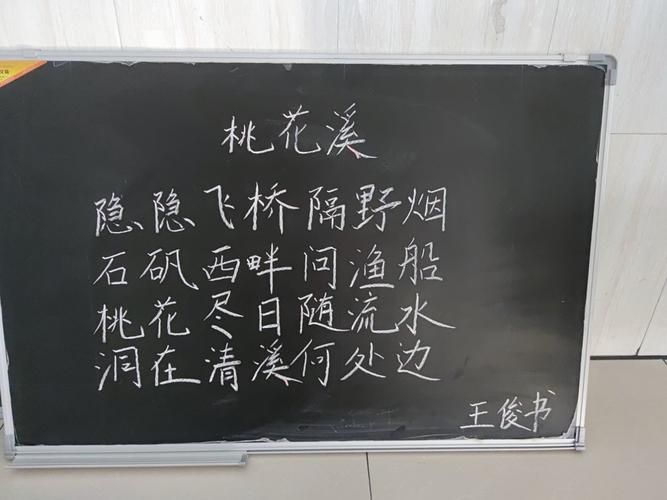 桃花溪
隐隐飞桥隔野烟
石矶西畔问渔船
桃花尽日随流水
洞在清溪何处边
王俊书